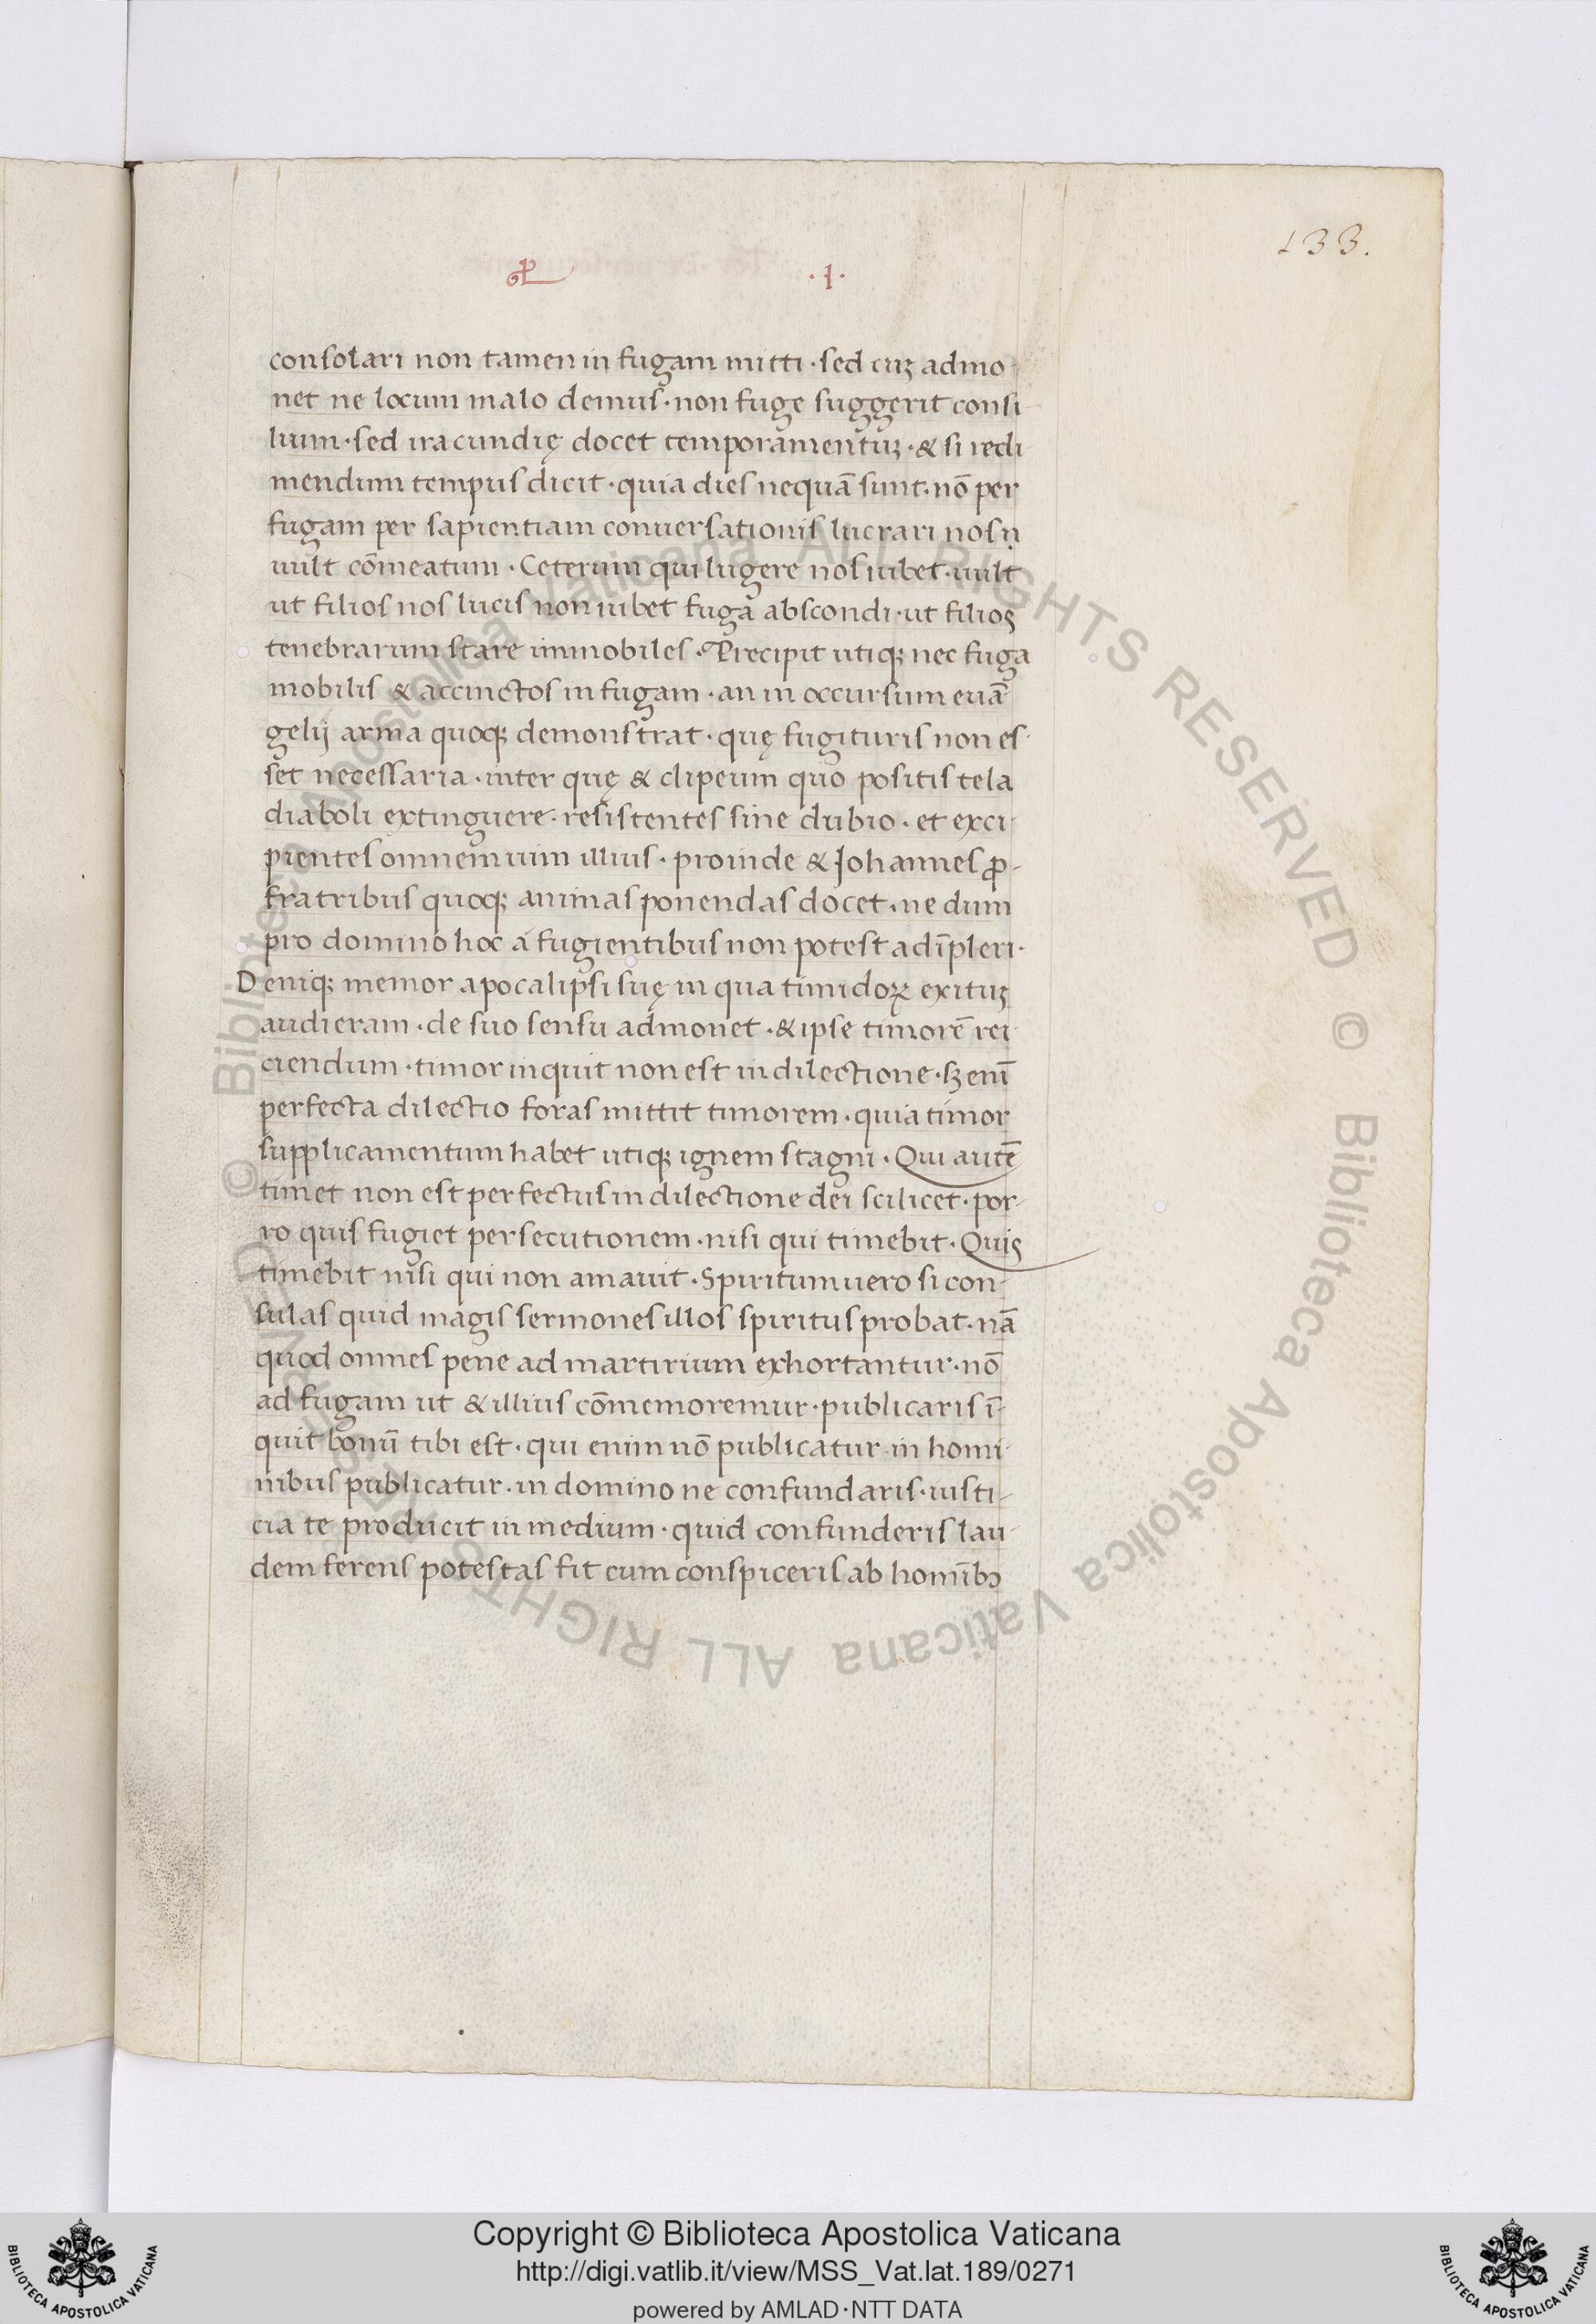 133.
.I.
consolari non tamen in fugam mitti · sed cuꝫ admo
net ne locum malo demus · non fuge suggerit consi
lium · sed iracundię docet temporamentuꝫ · & si redi
mendum tempus dicit · quia dies nequā sunt · nō per
fugam per sapientiam conuersationis lucrari nos ṇ
uult cōmeatum · Ceterum qui lugere nos iubet · uult
ut filios nos lucis non iubet fuga abscondi · ut filios
tenebrarum stare immobiles · Precipit utiqꝫ nec fuga
mobilis & accinctos in fugam · an in occursum euā
gelij arma quoqꝫ demonstrat · quę fugituris non es
set necessaria · inter quę & clipeum quo positis tela
diaboli extinguere · resistentes sine dubio · et exci
pientes omnem uim illius · proinde & Johannes ꝓ-
fratribus quoqꝫ animas ponendas docet · ne dum
pro domino hoc a fugientibus non potest adīpleri ·
Deniqꝫ memor apocalipsi suę in qua timidoꝝ exituꝫ
audieram · de suo sensu admonet · & ipse timorē rei
ciendum · timor inquit non est in dilectione · sꝫ enī
perfecta dilectio foras mittit timorem · quia timor
supplicamentum habet utiqꝫ ignem stagni · Qui autē
timet non est perfectus in dilectione dei scilicet · por-
ro quis fugiet persecutionem · nisi qui timebit · Quis
timebit nisi qui non amauit · Spiritum uero si con-
sulas quid magis sermones illos spiritus probat · nā
quod omnes pene ad martirium exhortantur · nō
ad fugam ut & illius cōmemoremur · publicaris ī-
quit bonū tibi est · qui enim nō publicatur in homi
nibus publicatur · in domino ne confundaris · iusti-
cia te producit in medium · quid confunderis lau
dem ferens potestas fit cum conspiceris ab homībꝫ
© Biblioteca Apostolica Vaticana ALL RIGHTS RESERVED © Biblioteca Apostolica Vaticana ALL RIGHTS RESERVED
Copyright © Biblioteca Apostolica Vaticana
http://digi.vatlib.it/view/MSS_Vat.lat.189/0271
powered by AMLAD·NTT DATA
BIBLIOTECA APOSTOLICA VATICANA
BIBLIOTECA APOSTOLICA VATICANA